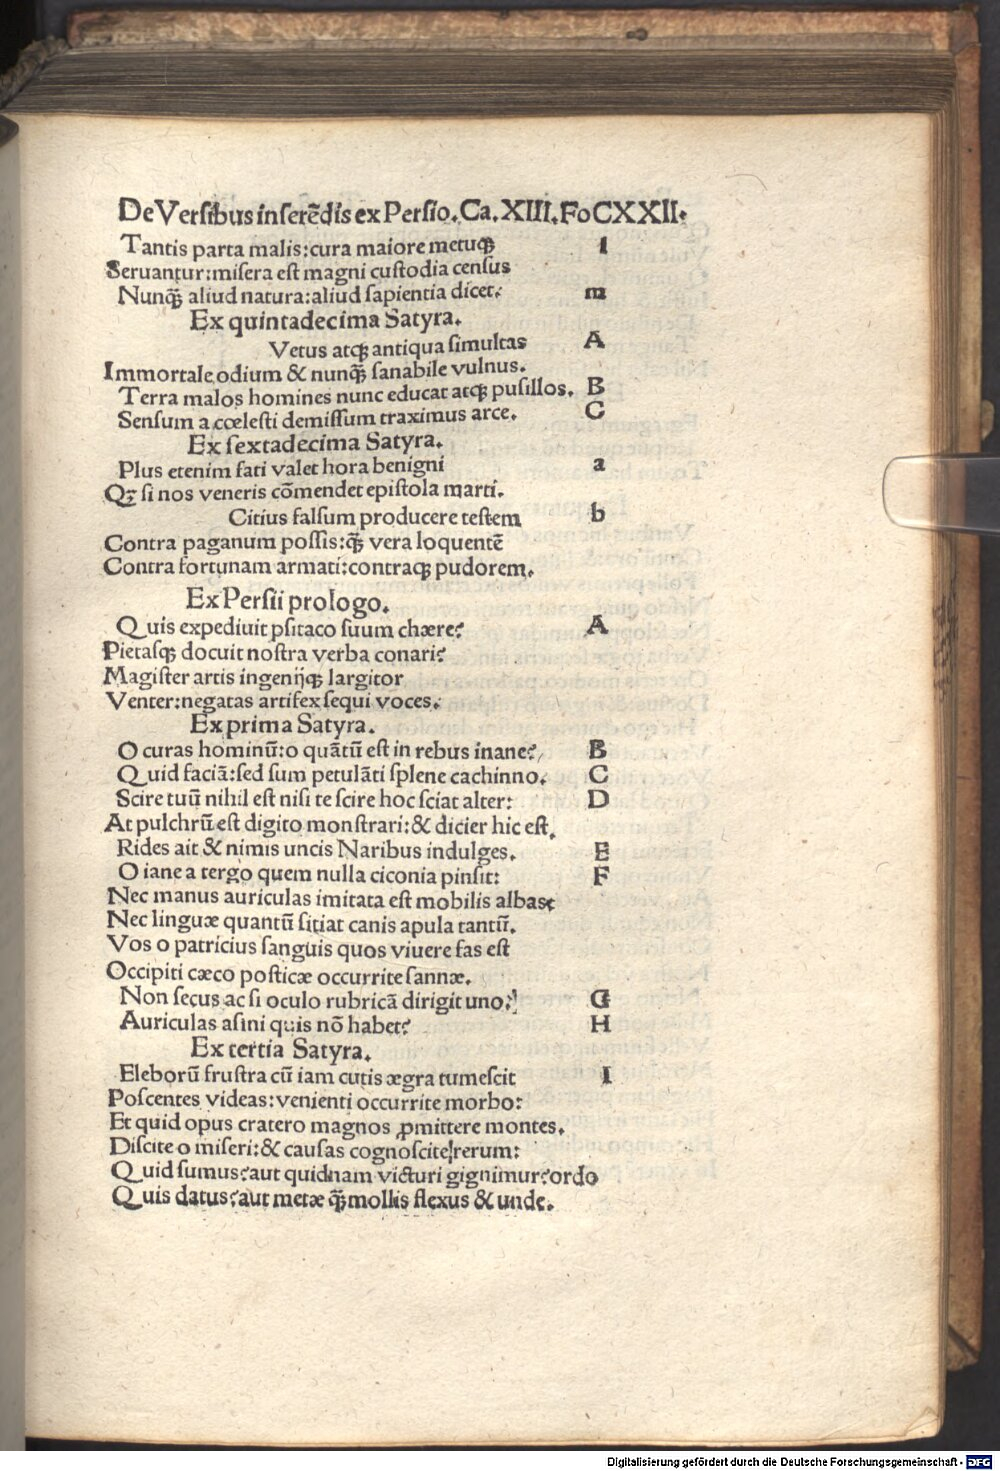 De Versibus inserēdis ex Persio. Ca. XIII. Fo CXXII.
Tantis parta malis: cura maiore metuqꝫ l
Seruantur: misera est magni custodia census
Nunqꝫ̄ aliud natura: aliud sapientia dicet: m
Ex quintadecima Satyra.
Vetus atqꝫ antiqua simultas A
Immortale odium & nunqꝫ̄ sanabile vulnus.
Terra malos homines nunc educat atqꝫ pusillos. B
Sensum a cœlesti demissum traximus arce. C
Ex sextadecima Satyra.
Plus etenim fati valet hora benigni a
Qꝫ si nos veneris cōmendet epistola marti.
Citius falsum producere testem b
Contra paganum possis: qꝫ̄ vera loquentē
Contra fortunam armati: contraqꝫ pudorem.
Ex Persii prologo.
Quis expediuit psitaco suum chære? A
Pietasqꝫ docuit nostra verba conari?
Magister artis ingenijqꝫ largitor
Venter: negatas artifex sequi voces.
Ex prima Satyra.
O curas hominū: o quātū est in rebus inane? B
Quid faciā: sed sum petulāti splene cachinno. C
Scire tuū nihil est nisi te scire hoc sciat alter: D
At pulchrū est digito monstrari: & dicier hic est.
Rides ait & nimis uncis Naribus indulges. E
O iane a tergo quem nulla ciconia pinsit: F
Nec manus auriculas imitata est mobilis albas
Nec linguæ quantū sitiat canis apula tantū.
Vos o patricius sanguis quos viuere fas est
Occipiti cæco posticæ occurrite sannæ.
Non secus ac si oculo rubricā dirigit uno? G
Auriculas asini quis nō habet? H
Ex tertia Satyra.
Eleborū frustra cū iam cutis ægra tumescit I
Poscentes videas: venienti occurrite morbo:
Et quid opus cratero magnos ꝓmittere montes.
Discite o miseri: & causas cognoscite rerum:
Quid sumus? aut quidnam victuri gignimur? ordo
Quis datus? aut metæ qꝫ̄ mollis flexus & unde.
Digitalisierung gefördert durch die Deutsche Forschungsgemeinschaft - DFG